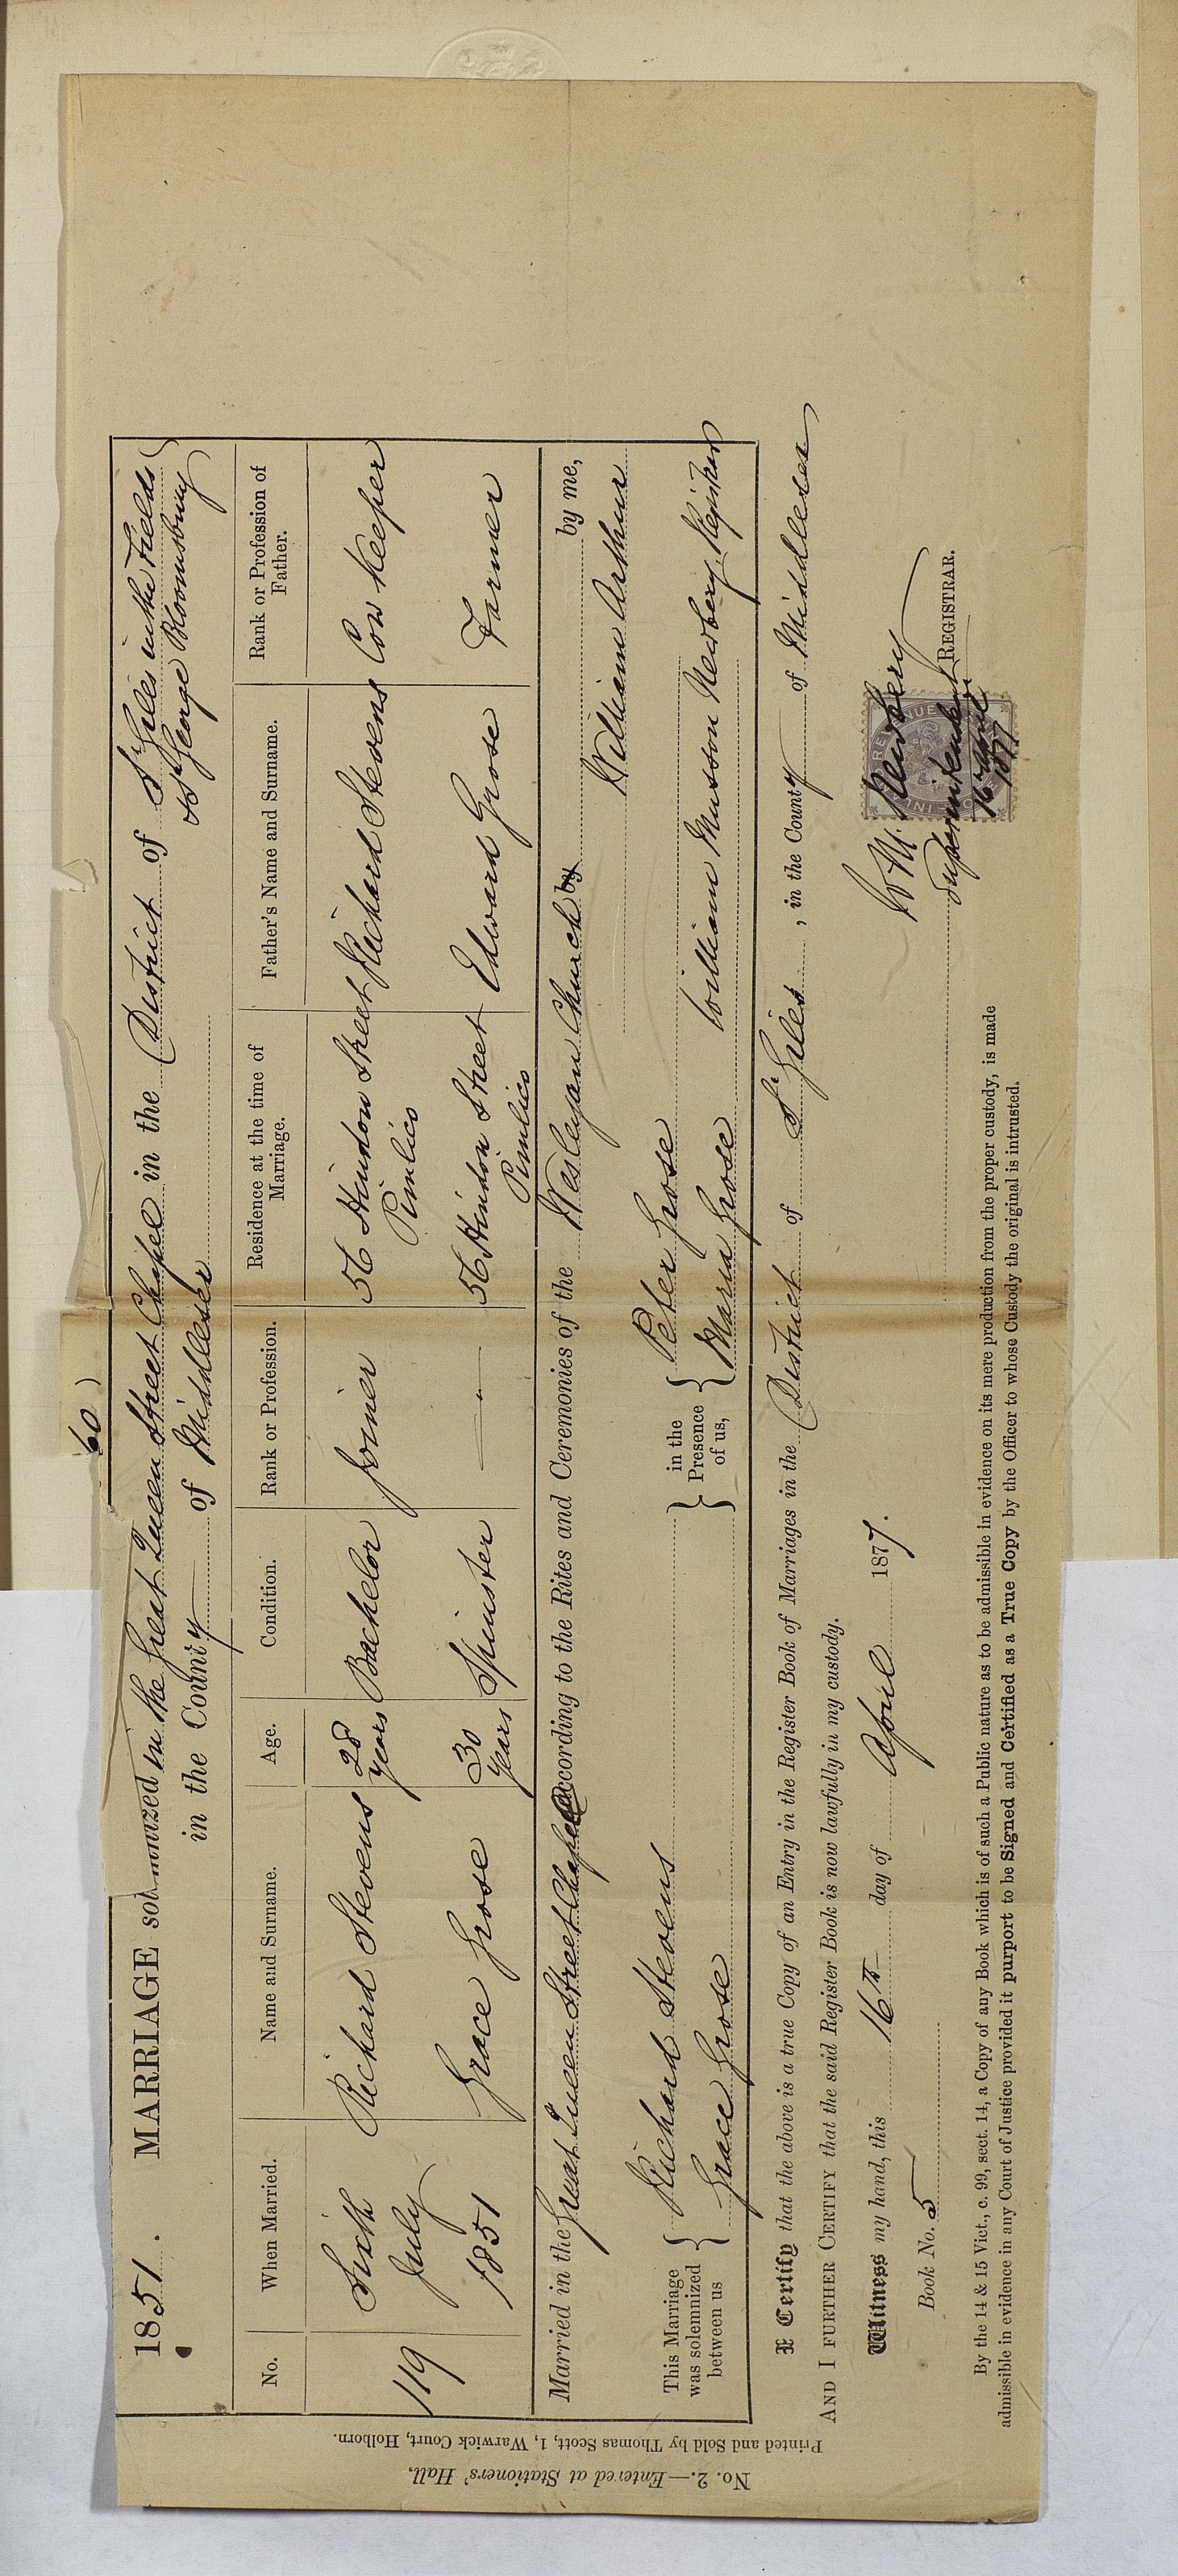 60)
1851. MARRIAGE solemnized in the Great Queen Street Chapel in the District of St Giles in the Fields
& St George Bloomsbury
in the County of Middlesex
No. When Married. Name and Surname. Age. Condition. Rank or Profession. Residence at the time of Marriage. Father's Name and Surname. Rank or Profession of Father.
119 Sixth July 1851 Richard Stevens 28 years Bachelor Joiner 56 Hindon Street Pimlico Richard Stevens Cow Keeper
Grace Grose 30 years Spinster — 56 Hindon Street Pimlico Edward Grose Farmer
Married in the Great Queen Street Chapel According to the Rites and Ceremonies of the Wesleyan Church by by me,
William Arthur
This Marriage was solemnized between us { Richard Stevens } in the Presence of us, { Peter Grose
Grace Grose Maria Grose William Musson Newbery, Registrar
I Certify that the above is a true Copy of an Entry in the Register Book of Marriages in the District of St Giles, in the County of Middlesex
AND I FURTHER CERTIFY that the said Register Book is now lawfully in my custody.
Witness my hand, this 16th day of April 1877.
W M. Newbery
Superintendent REGISTRAR.
16 April
1877
Book No. 5
By the 14 & 15 Vict., c. 99, sect. 14, a Copy of any Book which is of such a Public nature as to be admissible in evidence on its mere production from the proper custody, is made
admissible in evidence in any Court of Justice provided it purport to be Signed and Certified as a True Copy by the Officer to whose Custody the original is intrusted.
No. 2.—Entered at Stationers' Hall.
Printed and Sold by Thomas Scott, 1, Warwick Court, Holborn.